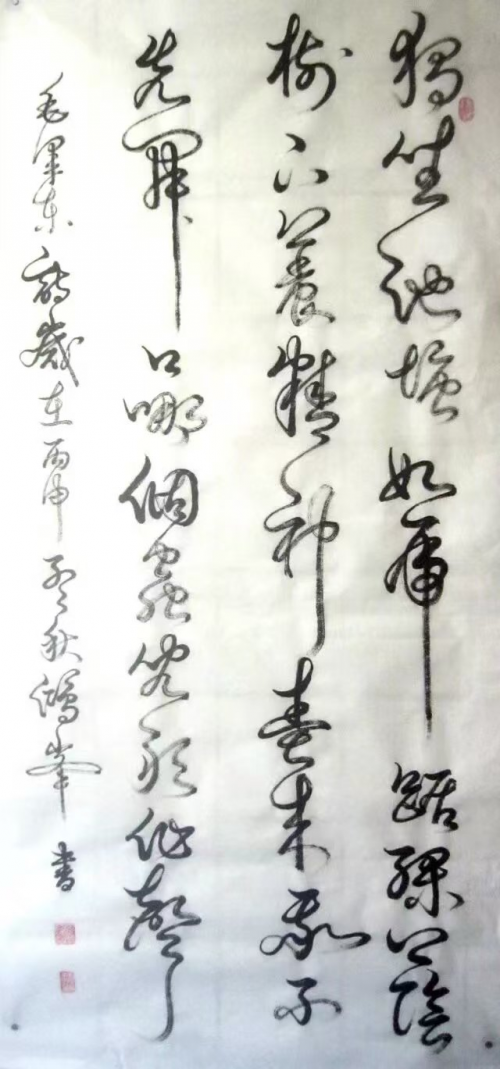 獨坐池塘如虎踞綠陰
樹下養精神春來我不
先開口哪個蟲兒敢作聲
毛澤東詩歲在丙申秋鴻峯書